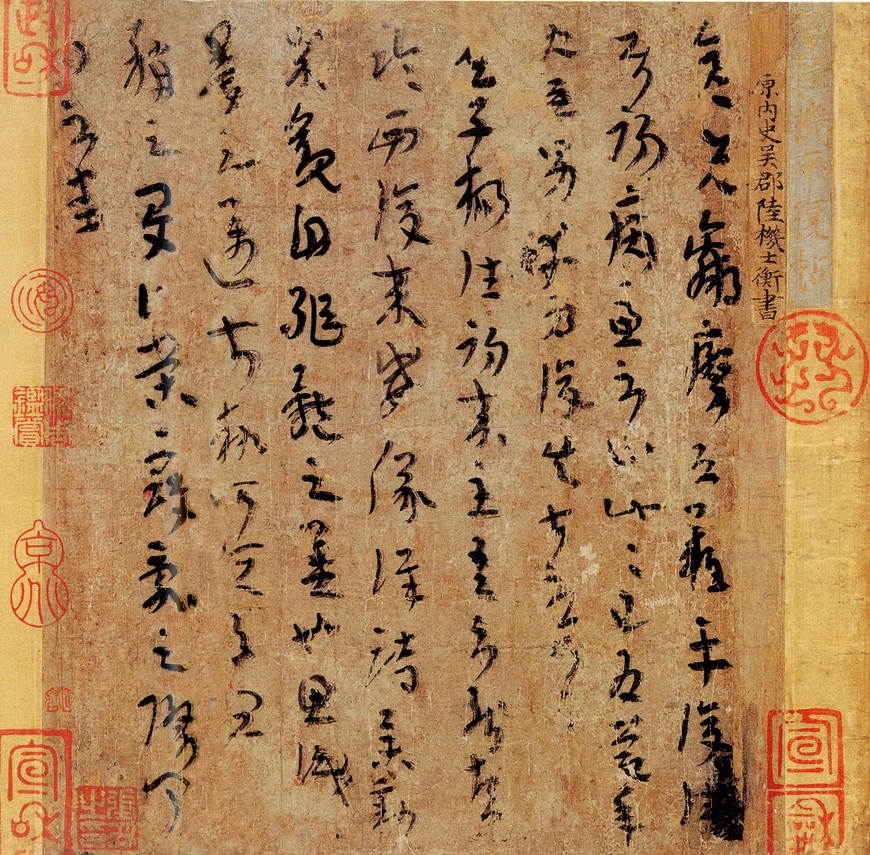 陸機平復帖
原內史吳郡陸機士衡書
彥先羸瘵恐難平復往屬
初病慮不止此此已為慶承
使唯男幸為復失前憂耳
吳子楊往初來主吾不能盡
臨西復來威儀詳跱舉動
成觀自軀體之美也思識
量之邁前執所恆有宜
稱之夏伯榮寇亂之際聞
問不悉
政和
宣和
宣和